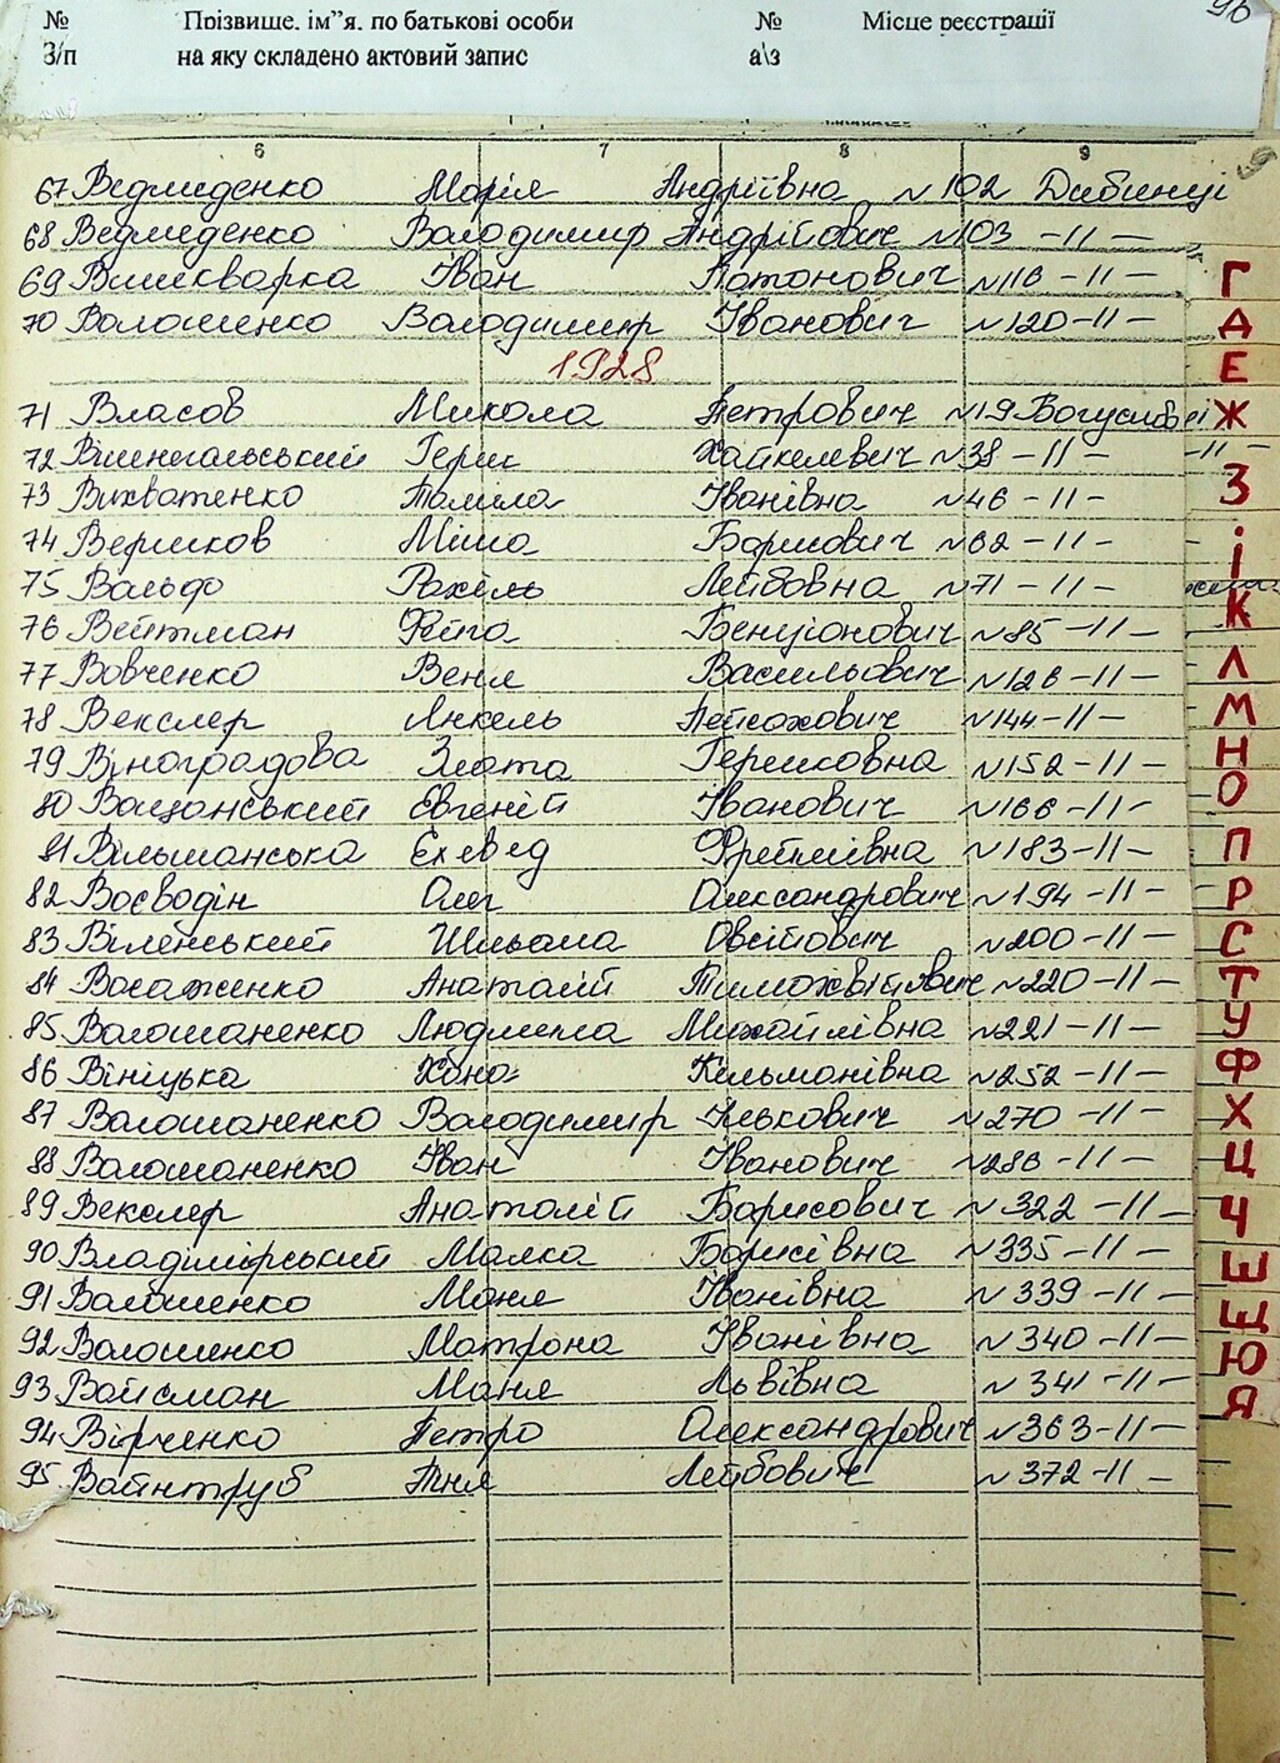 № Прізвище. ім”я. по батькові особи № Місце реєстрації
З/п на яку складено актовий запис а\з
6 7 8 9
67 Ведмеденко Марія Андріївна №102 Дибинці
68 Ведмеденко Володимир Андрійович №103 -11-
69 Вишкварка Іван Потапович №116 -11-
70 Волошенко Володимир Іванович №120 -11-
1928
71 Власов Микола Петрович №19 Богуслав
72 Герш Хайкелевич №38 -11-
73 Вихватенко Таміла Іванівна №46 -11-
74 Вершков Міша Борисович №62 -11-
75 Вальдо Рахіль Лейбовна №71 -11-
76 Вейтман Фейга Бенціонович №85 -11-
77 Вовченко Веня Васильович №126 -11-
78 Векслер Анкель Пейсахович №144 -11-
79 Віноградова Злата Гершковна №152 -11-
80 Ващанський Евгеній Іванович №166 -11-
81 Вільшанська Ехевед Фреймівна №183 -11-
82 Воєводін Олег Олександрович №194 -11-
83 Віленський Шльома Овсійович №200 -11-
84 Анатолій Тимохвійович №220 -11-
85 Волошаненко Людмила Михайлівна №221 -11-
86 Вініцька Хана Кельманівна №252 -11-
87 Волошаненко Володимир Ількович №270 -11-
88 Волошаненко Іван Іванович №286 -11-
89 Векслер Анатолій Борисович №322 -11-
90 Владімірський Малка Борисівна №335 -11-
91 Волошенко Маня Іванівна №339 -11-
92 Волошенко Матрона Іванівна №340 -11-
93 Вайсман Маня Львівна №341 -11-
94 Вірченко Петро Олександрович №363 -11-
95 Вайнтруб Лейбович №372 -11-
Г
Д
Е
Ж
З
і
К
Л
М
Н
О
П
Р
С
Т
У
Ф
Х
Ц
Ч
Ш
Щ
Ю
Я